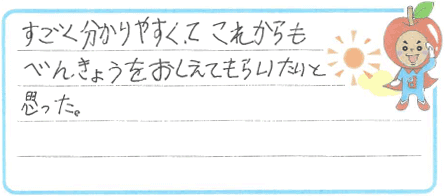 すごく分かりやすくて これからも
べんきょうをおしえてもらいたいと
思った。